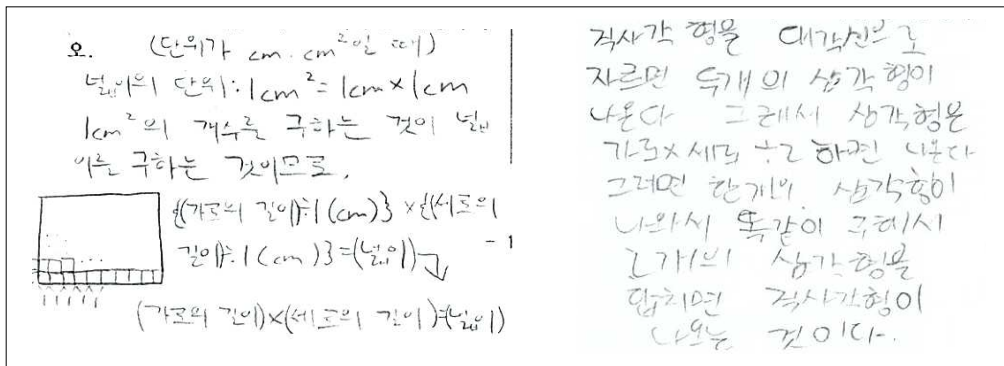 오. (단위가 cm. cm²일 때)
넓이의 단위: 1cm² = 1cm×1cm
1cm²의 개수를 구하는 것이 넓
이를 구하는 것이므로,
{(가로의 길이)÷1(cm)}×{(세로의
길이)÷1(cm)}=(넓이)
- 1
(가로의 길이)×(세로의 길이)=(넓이)
직사각형을 대각선으로
자르면 두개의 삼각형이
나온다 그래서 삼각형은
가로×세로÷2 하면 나온다
그러면 한개의 삼각형이
나와서 똑같이 구해서
2개의 삼각형을
합치면 직사각형이
나오는 것이다.